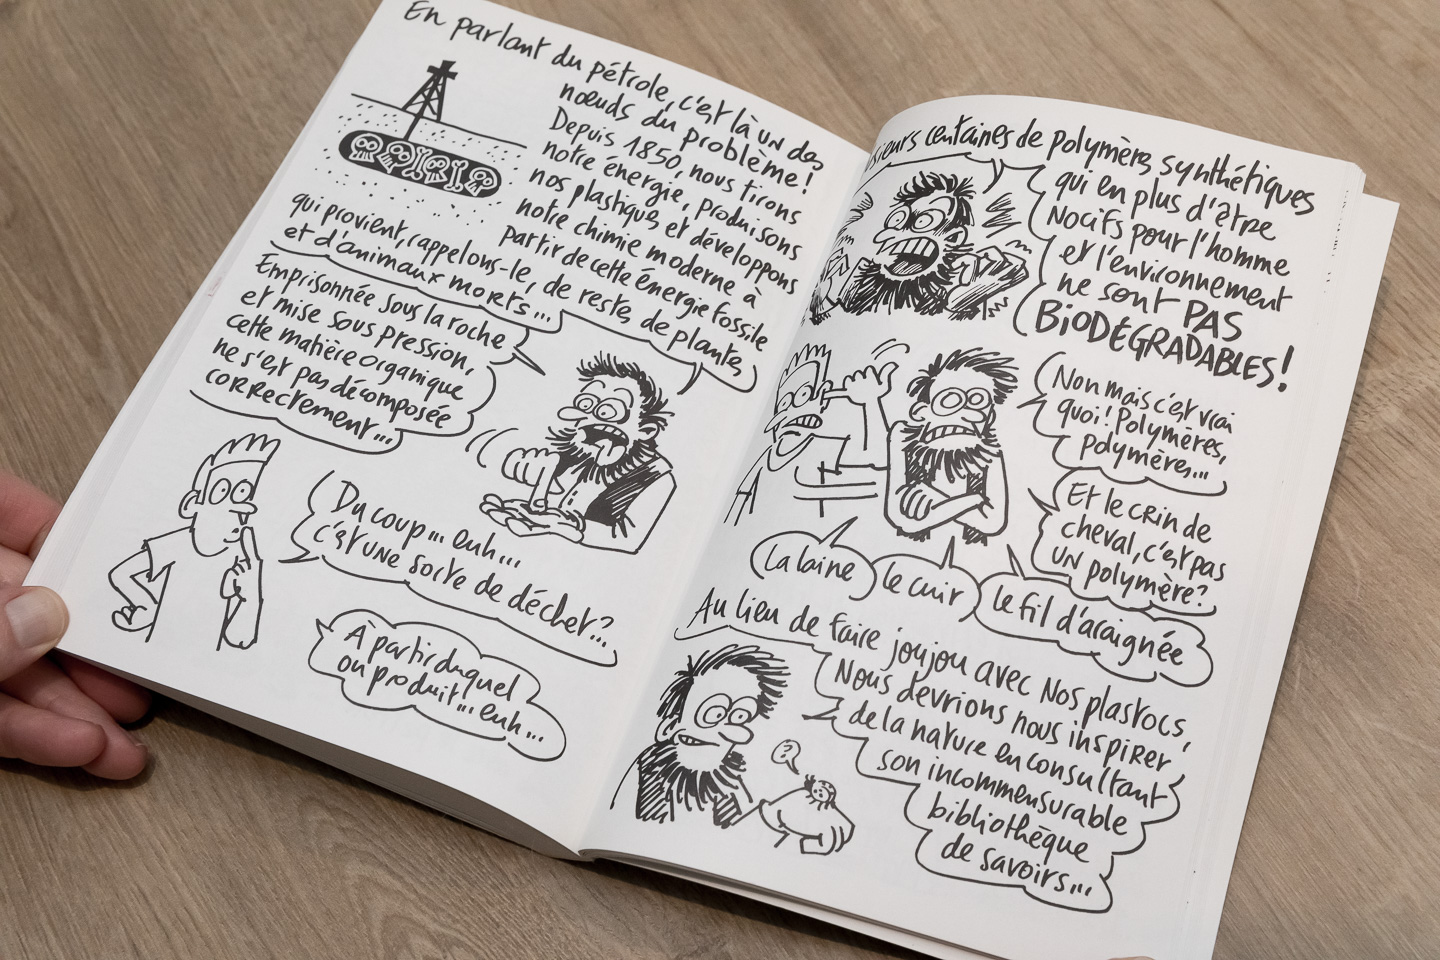 En parlant du pétrole, c'est là un des
nœuds du problème!
Depuis 1850, nous tirons
notre énergie, produisons
nos plastiques et développons
notre chimie moderne à
partir de cette énergie fossile
qui provient, rappelons-le, de restes de plantes
et d'animaux morts...
Emprisonnée sous la roche
et mise sous pression,
cette matière organique
ne s'est pas décomposée
correctement...
Du coup... euh...
c'est une sorte de déchet?..
À partir duquel
on produit... euh...
centaines de polymères synthétiques
qui en plus d'être
nocifs pour l'homme
et l'environnement
ne sont PAS
BIODÉGRADABLES!
Non mais c'est vrai
quoi! Polymères,
polymères...
Et le crin de
cheval, c'est pas
un polymère?
La laine
le cuir
le fil d'araignée
Au lieu de faire joujou avec nos plastocs,
Nous devrions nous inspirer
de la nature en consultant
son incommensurable
bibliothèque
de savoirs...
?